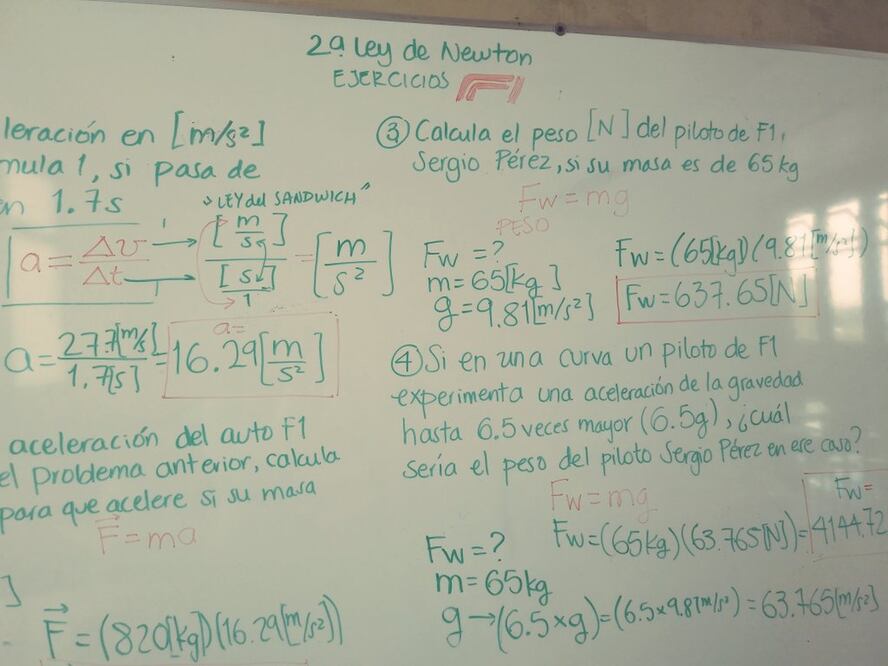 2ª Ley de Newton
EJERCICIOS F1
leración en [m/s²]
mula 1, si pasa de
n 1.7s
"LEY del SANDWICH"
a = Δv/Δt → [m/s]/[s]/1 = [m/s²]
a = 27.7[m/s]/1.7[s] = a= 16.29[m/s²]
aceleración del auto F1
el problema anterior, calcula
para que acelere si su masa
F⃗ = ma
]
F⃗ = (820[kg])(16.29[m/s²])
③ Calcula el peso [N] del piloto de F1,
Sergio Pérez, si su masa es de 65 kg
Fw = mg
PESO
Fw = ?
m = 65[kg]
g = 9.81[m/s²]
Fw = (65[kg])(9.81[m/s²])
Fw = 637.65[N]
④ Si en una curva un piloto de F1
experimenta una aceleración de la gravedad
hasta 6.5 veces mayor (6.5g), ¿cuál
sería el peso del piloto Sergio Pérez en ese caso?
Fw = mg
Fw = (65kg)(63.765[N]) = Fw = 4144.72
Fw = ?
m = 65kg
g → (6.5 × g) = (6.5 × 9.81 m/s²) = 63.765[m/s²]